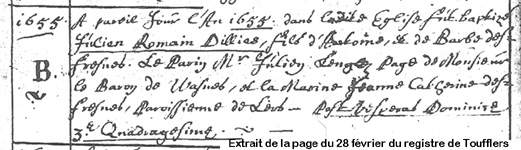 1655. A pareil Jour l'An 1655. dans ladite Eglise fut baptizé
Julien Romain Dillies, fils d'Antoine, & de Barbe des-
B. fresnes. Le Parin Mr. Julien Page de Monsieur
le Baron de Wasnes, et la Marine Jeanne Catherine des-
fresnes, Paroissienne de Lers — Post Vesperas Dominicae
3.ae Quadragesimae. —
Extrait de la page du 28 février du registre de Toufflers